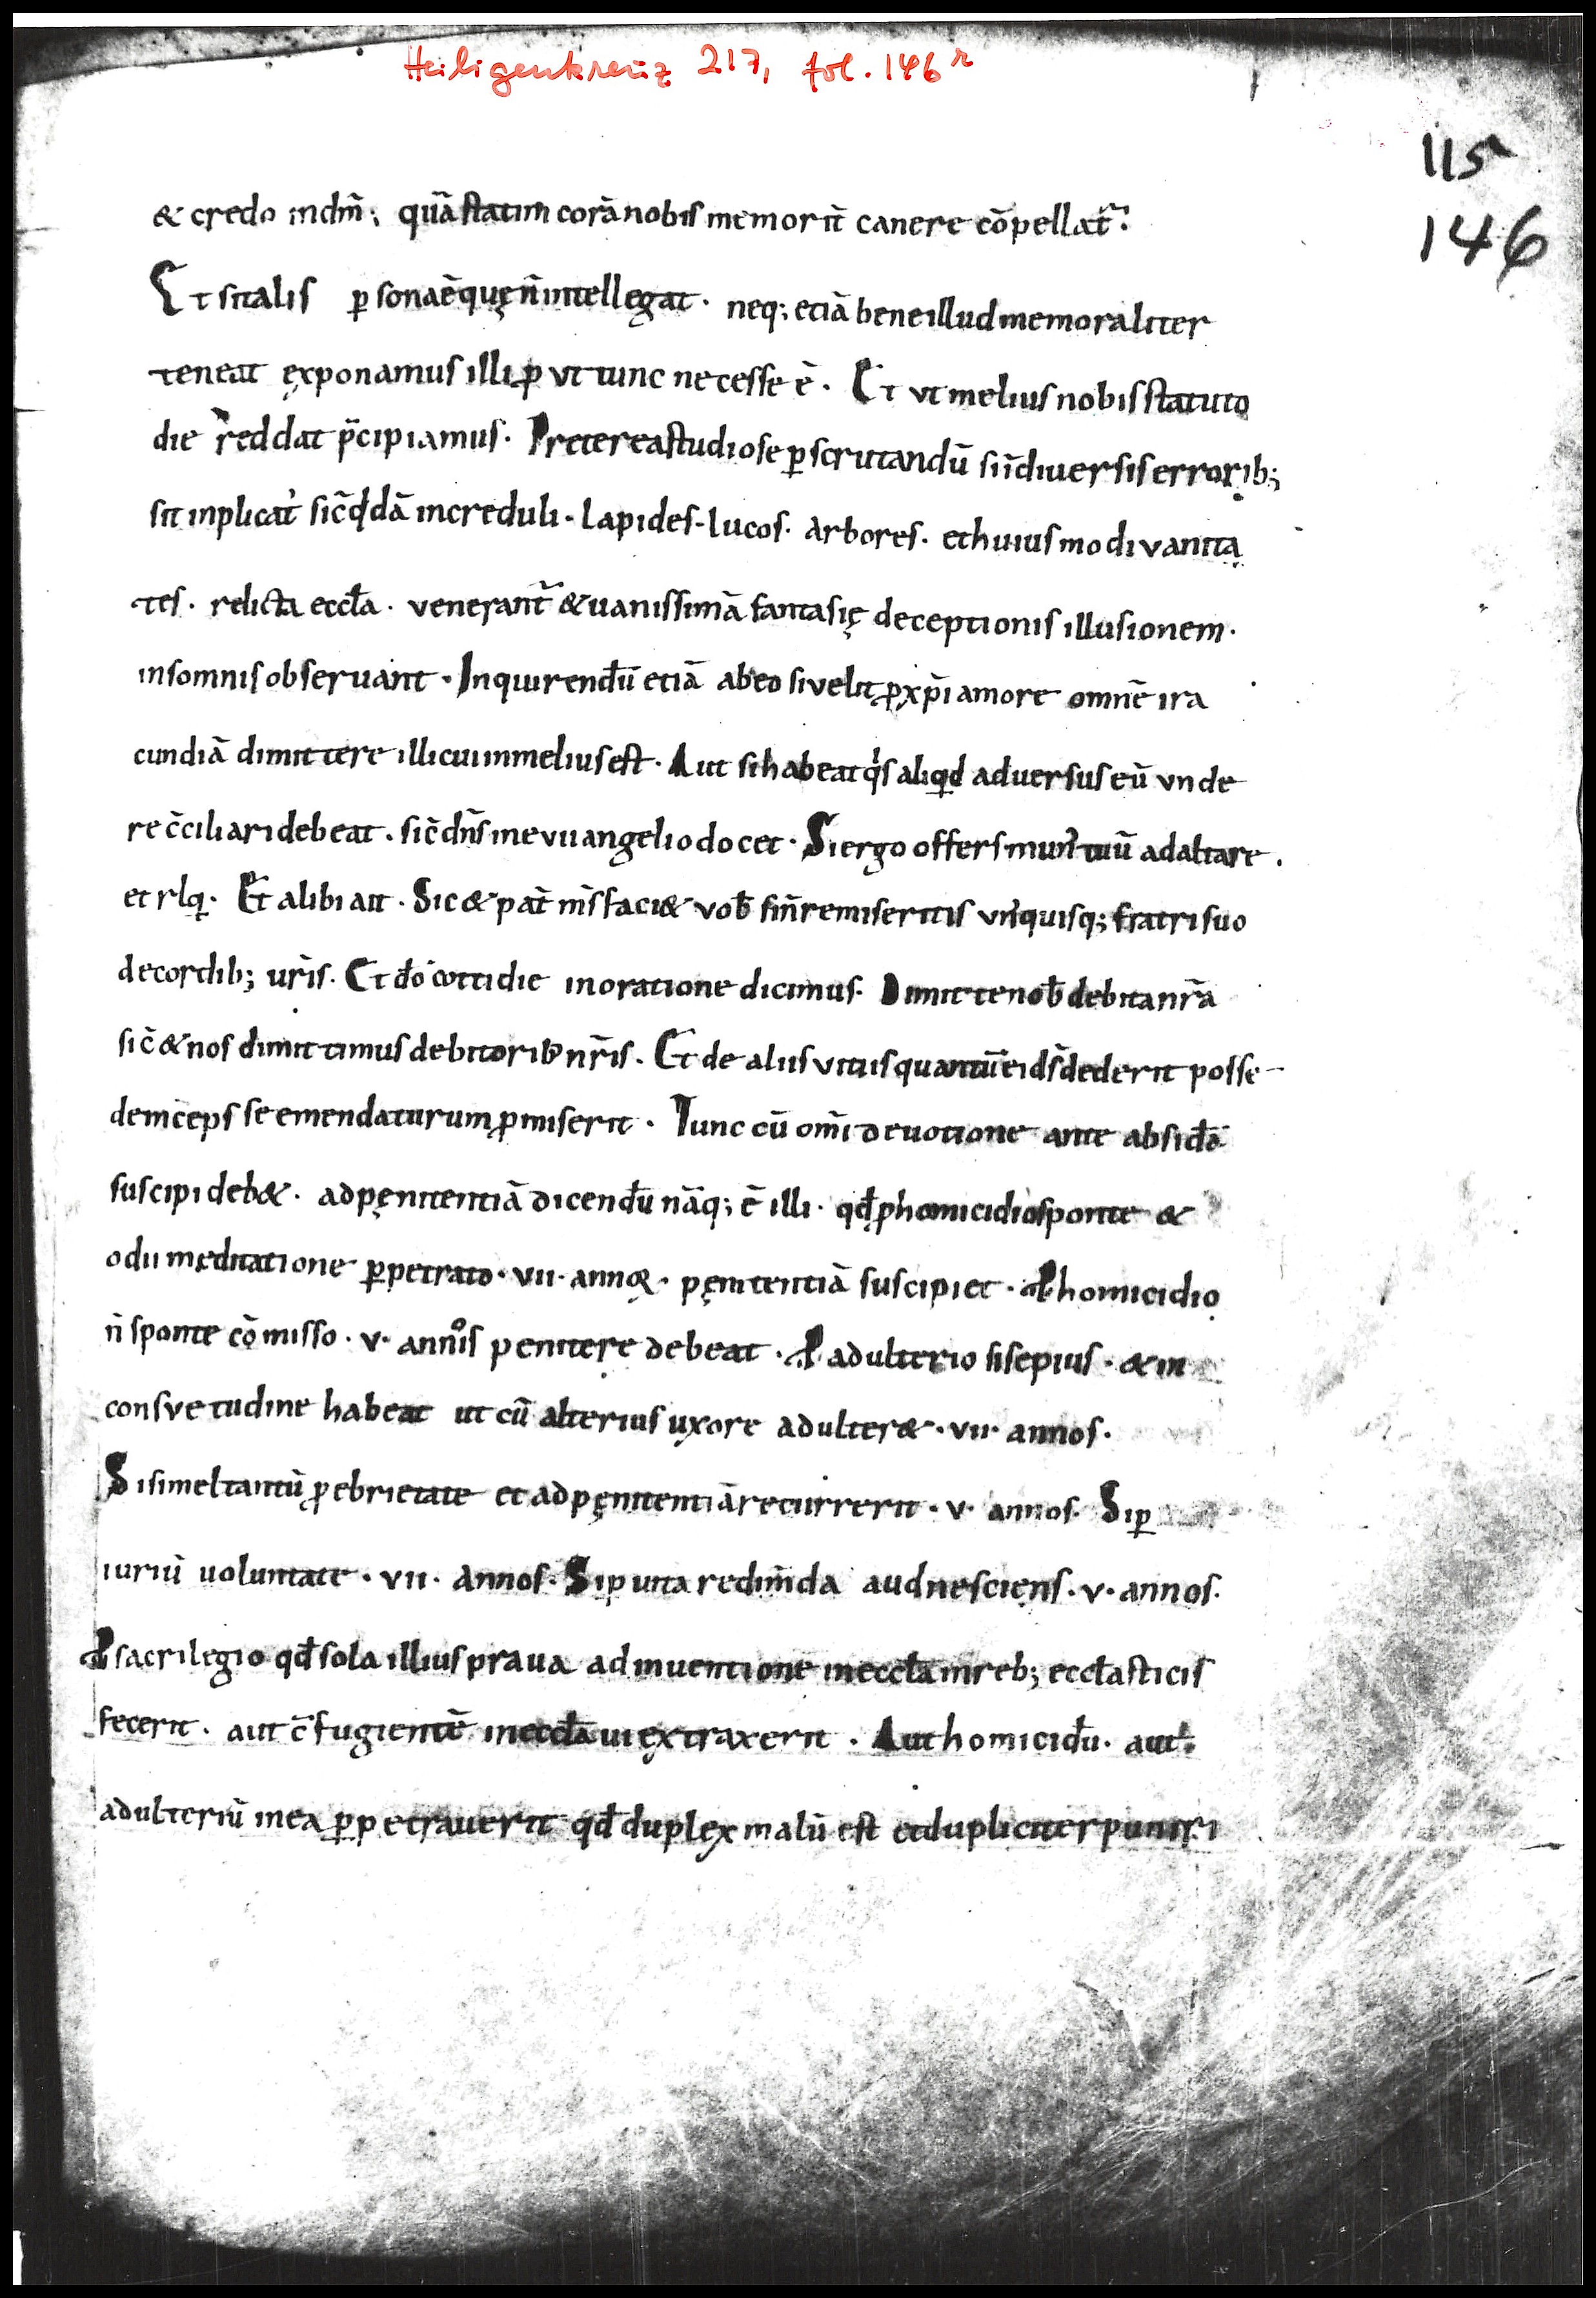 Heiligenkreuz 217, fol. 146r
115
146
& credo indm̄; quā statim corā nobis memorit̄ canere cōpellat᷒.
Et si talis p̱ sonae ē quę n̄ intellegat. neq; etiā bene illud memoraliter
teneat exponamus illi ꝓ ut tunc necesse ē. Et ut melius nobis statuto
die reddat p̄cipiamus. Preterea studiose ꝑscrutandū si in̄ diuersis errorib;
sit inplicat᾽ sic̄ qdā increduli. Lapides. lucos. Arbores. et huius modi vanita
tes. relicta eccła. venerant᷒ & uanissimā fantasię deceptionis illusionem.
insomnis obseruant. Inquirendū etiā ab eo si velit ꝓ xp̄i amore omnē ira
cundiā dimittere illi cui inmelius est. Aut si habeat qs aliqd aduersus eū vnde
rec̄ciliari debeat. sic̄ dn̄s in evuangelio docet. Si ergo offers mun᾽ tuū ad altare.
et rlq. Et alibi ait. Sic & pat̄ m̄s faci& vob̄ si n̄ remiseritis vn᾽quisq; fratri suo
de cordib; ur̄is. Et do cottidie in oratione dicimus. Dimitte nob̄ debita nr̄a
sic̄ & nos dimittimus debitorib᾽ nr̄is. Et de aliis vitiis quantū ei ds̄ dederit posse
deinceps se emendaturum ꝓmiserit. Tunc cū om̄i deuotione ante absidā
suscipi deb&. ad pęnitentiā dicendū nāq; ē illi. qđ ꝓ homicidio sponte &
odii meditatione ꝑpetrato. vii. annoꝝ. pęnitentiā suscipiet. Ꝓ homicidio
n̄ sponte cōmisso. v. annis penitere debeat. Ꝓ adulterio si sepius. & in
consvetudine habeat ut cū alterius uxore adulter&. vii. annos.
Si simel tantū ꝓ ebrietate et ad pęnitentiā recurrerit. v. annos. Si ꝑ
iuriū uoluntate. vii. Annos. Si ꝓ uita redim̄da aud nesciens. v. annos.
Ꝓ sacrilegio qđ sola illius praua adinuentione in eccła in reb; eccłasticis
fecerit. aut c̄fugientē in eccłā ui extraxerit. Aut homicidū. aut.
adulteriū in ea ꝑpetrauerit qđ duplex malū est et dupliciter puniri